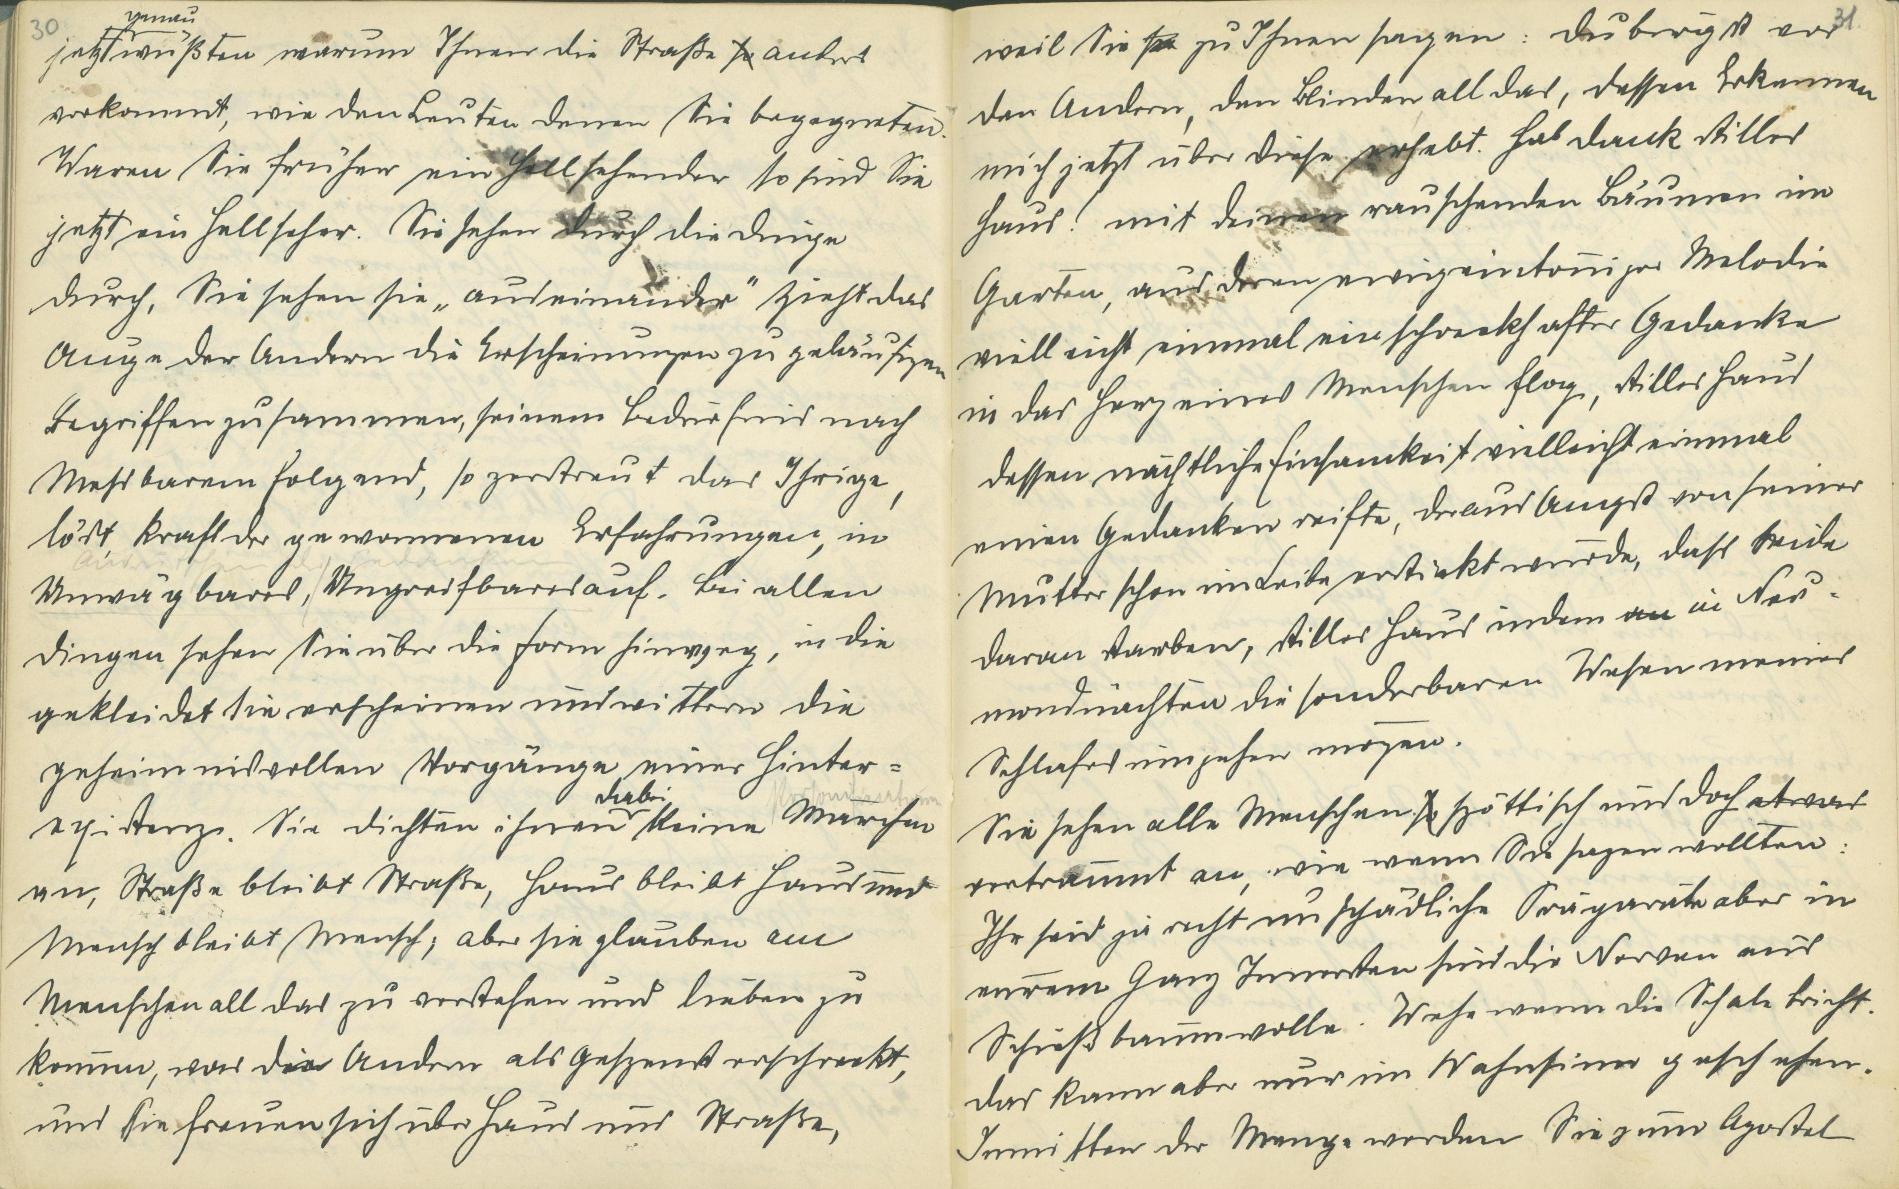 30
genau
jetzt wüßten warum Ihnen die Straße so anders
vorkommt, wie den Leuten denen Sie begegneten.
Waren Sie früher ein Hellsehender so sind Sie
jetzt ein Hellseher. Sie sehen durch die Dinge
durch, Sie sehen sie „auseinander" Zieht das
Auge der Andern die Erscheinungen zu geläufigen
Begriffen zusammen, seinem Bedürfnis nach
Messbarem folgend, so zerstreut das Ihrige,
löst, kraft der gewonnenen Erfahrungen, in
Unwägbares, Ungreifbares auf. Bei allen
Dingen sehen Sie über die Form hinweg, in die
gekleidet sie erscheinen und wittern die
geheimnisvollen Vorgänge einer Hinter=
dabei
existenz. Sie dichten ihnen keine Märchen
an, Straße bleibt Straße, Haus bleibt Haus und
Mensch bleibt Mensch; aber sie glauben am
Menschen all das zu verstehen und lieben zu
können, was die Andern als Gespenst erschreckt,
und Sie freuen sich über Haus und Straße,
31.
weil Sie zu Ihnen sagen: Du birgst vor
den Andern, den Blinden all das, dessen Erkennen
mich jetzt über diese erhebt. Hab Dank stilles
Haus! mit deinen rauschenden Bäumen im
Garten, aus deren ewigeintöniger Melodie
vielleicht einmal ein schreckhafter Gedanke
in das Herz eines Menschen flog, stilles Haus
dessen nächtliche Einsamkeit vielleicht einmal
einen Gedanken reifte, der aus Angst von seiner
Mutter schon im Leibe erstickt wurde, dass beide
daran starben, stilles Haus in dem an in Neu-
mondnächten die sonderbaren Wesen meines
Schlafes umgehen mögen.
Sie sehen alle Menschen so spöttisch und doch etwas
verträumt an, wie wenn Sie sagen wollten:
Ihr seid ja recht unschädliche Präparate aber in
eurem Ganz Innersten sind die Nerven aus
Schießbaumwolle. Wehe wenn die Schale bricht.
Das kann aber nur im Wahnsinn geschehen.
Inmitten der Menge werden Sie zum Apostel